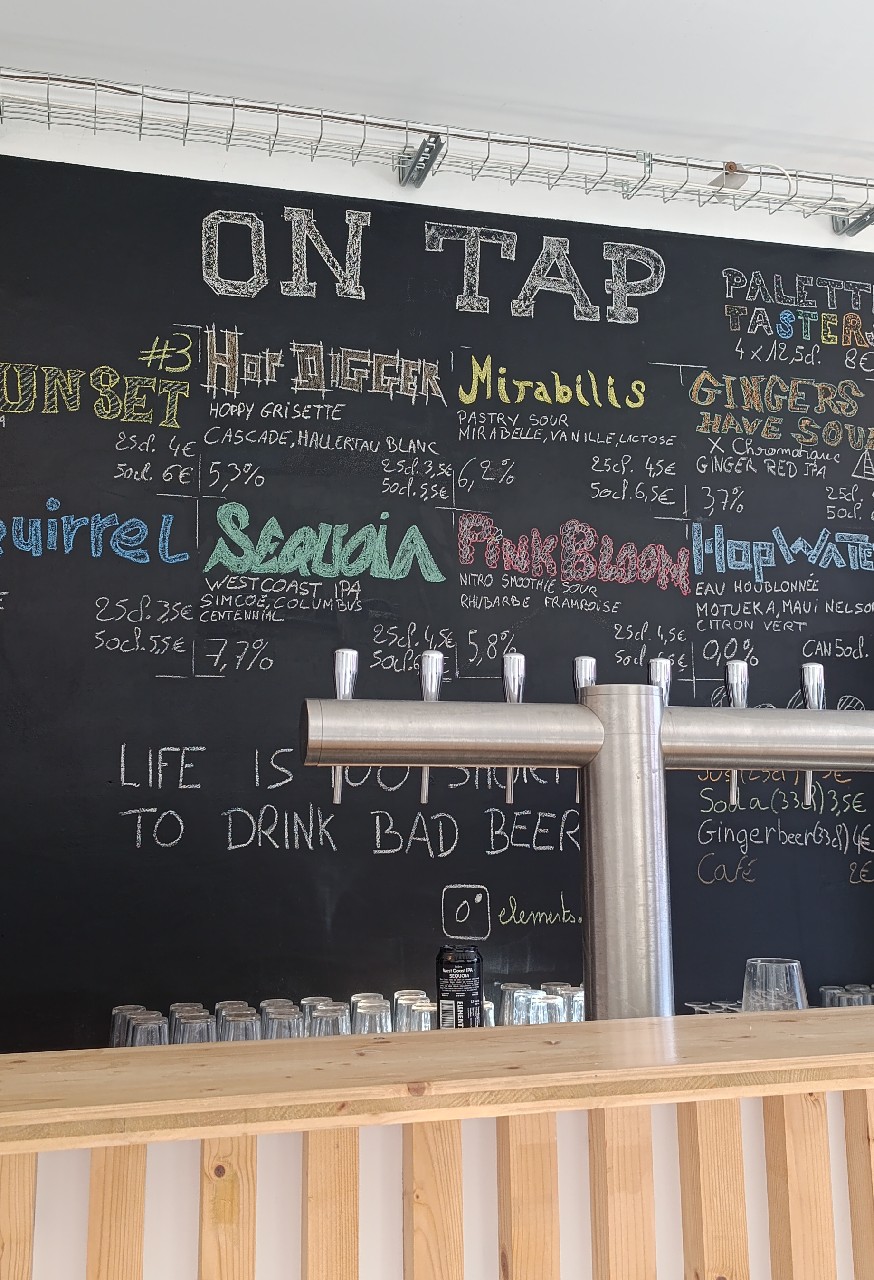 ON TAP
PALETTE
TASTER
4 x 12,5cl. 8€
#3
UNSET
25cl. 4€
50cl. 6€
Hop DIGGER
HOPPY GRISETTE
CASCADE, HALLERTAU BLANC
5,3%
25cl. 3,5€
50cl. 5,5€
Mirabilis
PASTRY SOUR
MIRABELLE, VANILLE, LACTOSE
6,2%
25cl. 4,5€
50cl. 6,5€
GINGERS
HAVE SOU
X Chromatique
GINGER RED IPA
3,7%
25cl.
50cl.
quirrel
25cl. 3,5€
50cl. 5,5€
SEQUOiA
WEST COAST IPA
SIMCOE, COLUMBUS
CENTENNIAL
7,7%
25cl. 4,5€
50cl.
PiNK BLOOM
NITRO SMOOTHIE SOUR
RHUBARBE FRAMBOISE
5,8%
25cl. 4,5€
50cl.
Hop WATE
EAU HOUBLONNÉE
MOTUEKA, MAUi NELSO
CITRON VERT
0,0%
CAN 50cl.
LIFE IS TOO SHORT
TO DRINK BAD BEER
elements.
Jus (25cl)
Soda (33cl) 3,5€
Gingerbeer (33cl) 4€
Café 2€
West Coast IPA
SEQUOIA